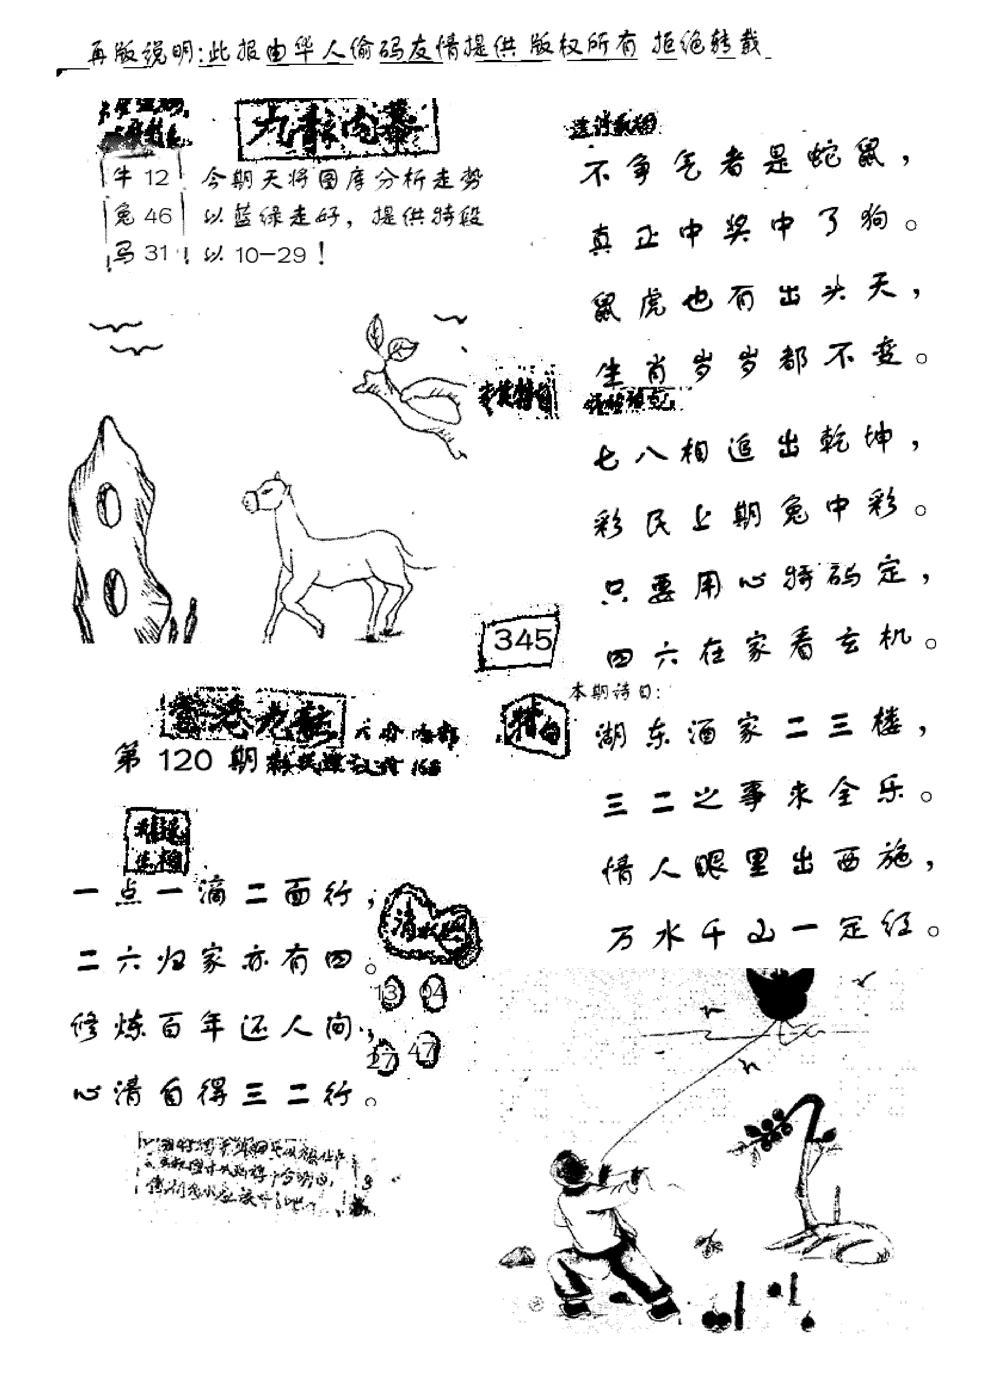 再版说明:此报由华人偷码友情提供 版权所有 拒绝转载
九龍内幕
牛 12
兔 46
马 31
今期天将图库分析走势
以蓝绿走好，提供特段
以 10—29！
不争气者是蛇鼠，
真正中奖中了狗。
鼠虎也有出头天，
生肖岁岁都不变。
七八相追出乾坤，
彩民上期兔中彩。
只要用心特码定，
四六在家看玄机。
345
香港九龍
第 120 期
特白
本期诗曰:
湖东酒家二三楼，
三二之事来全乐。
情人眼里出西施，
万水千山一定红。
一点一滴二面行，
二六归家亦有四。
修炼百年还人间，
心清自得三二行。
13 04
27 47